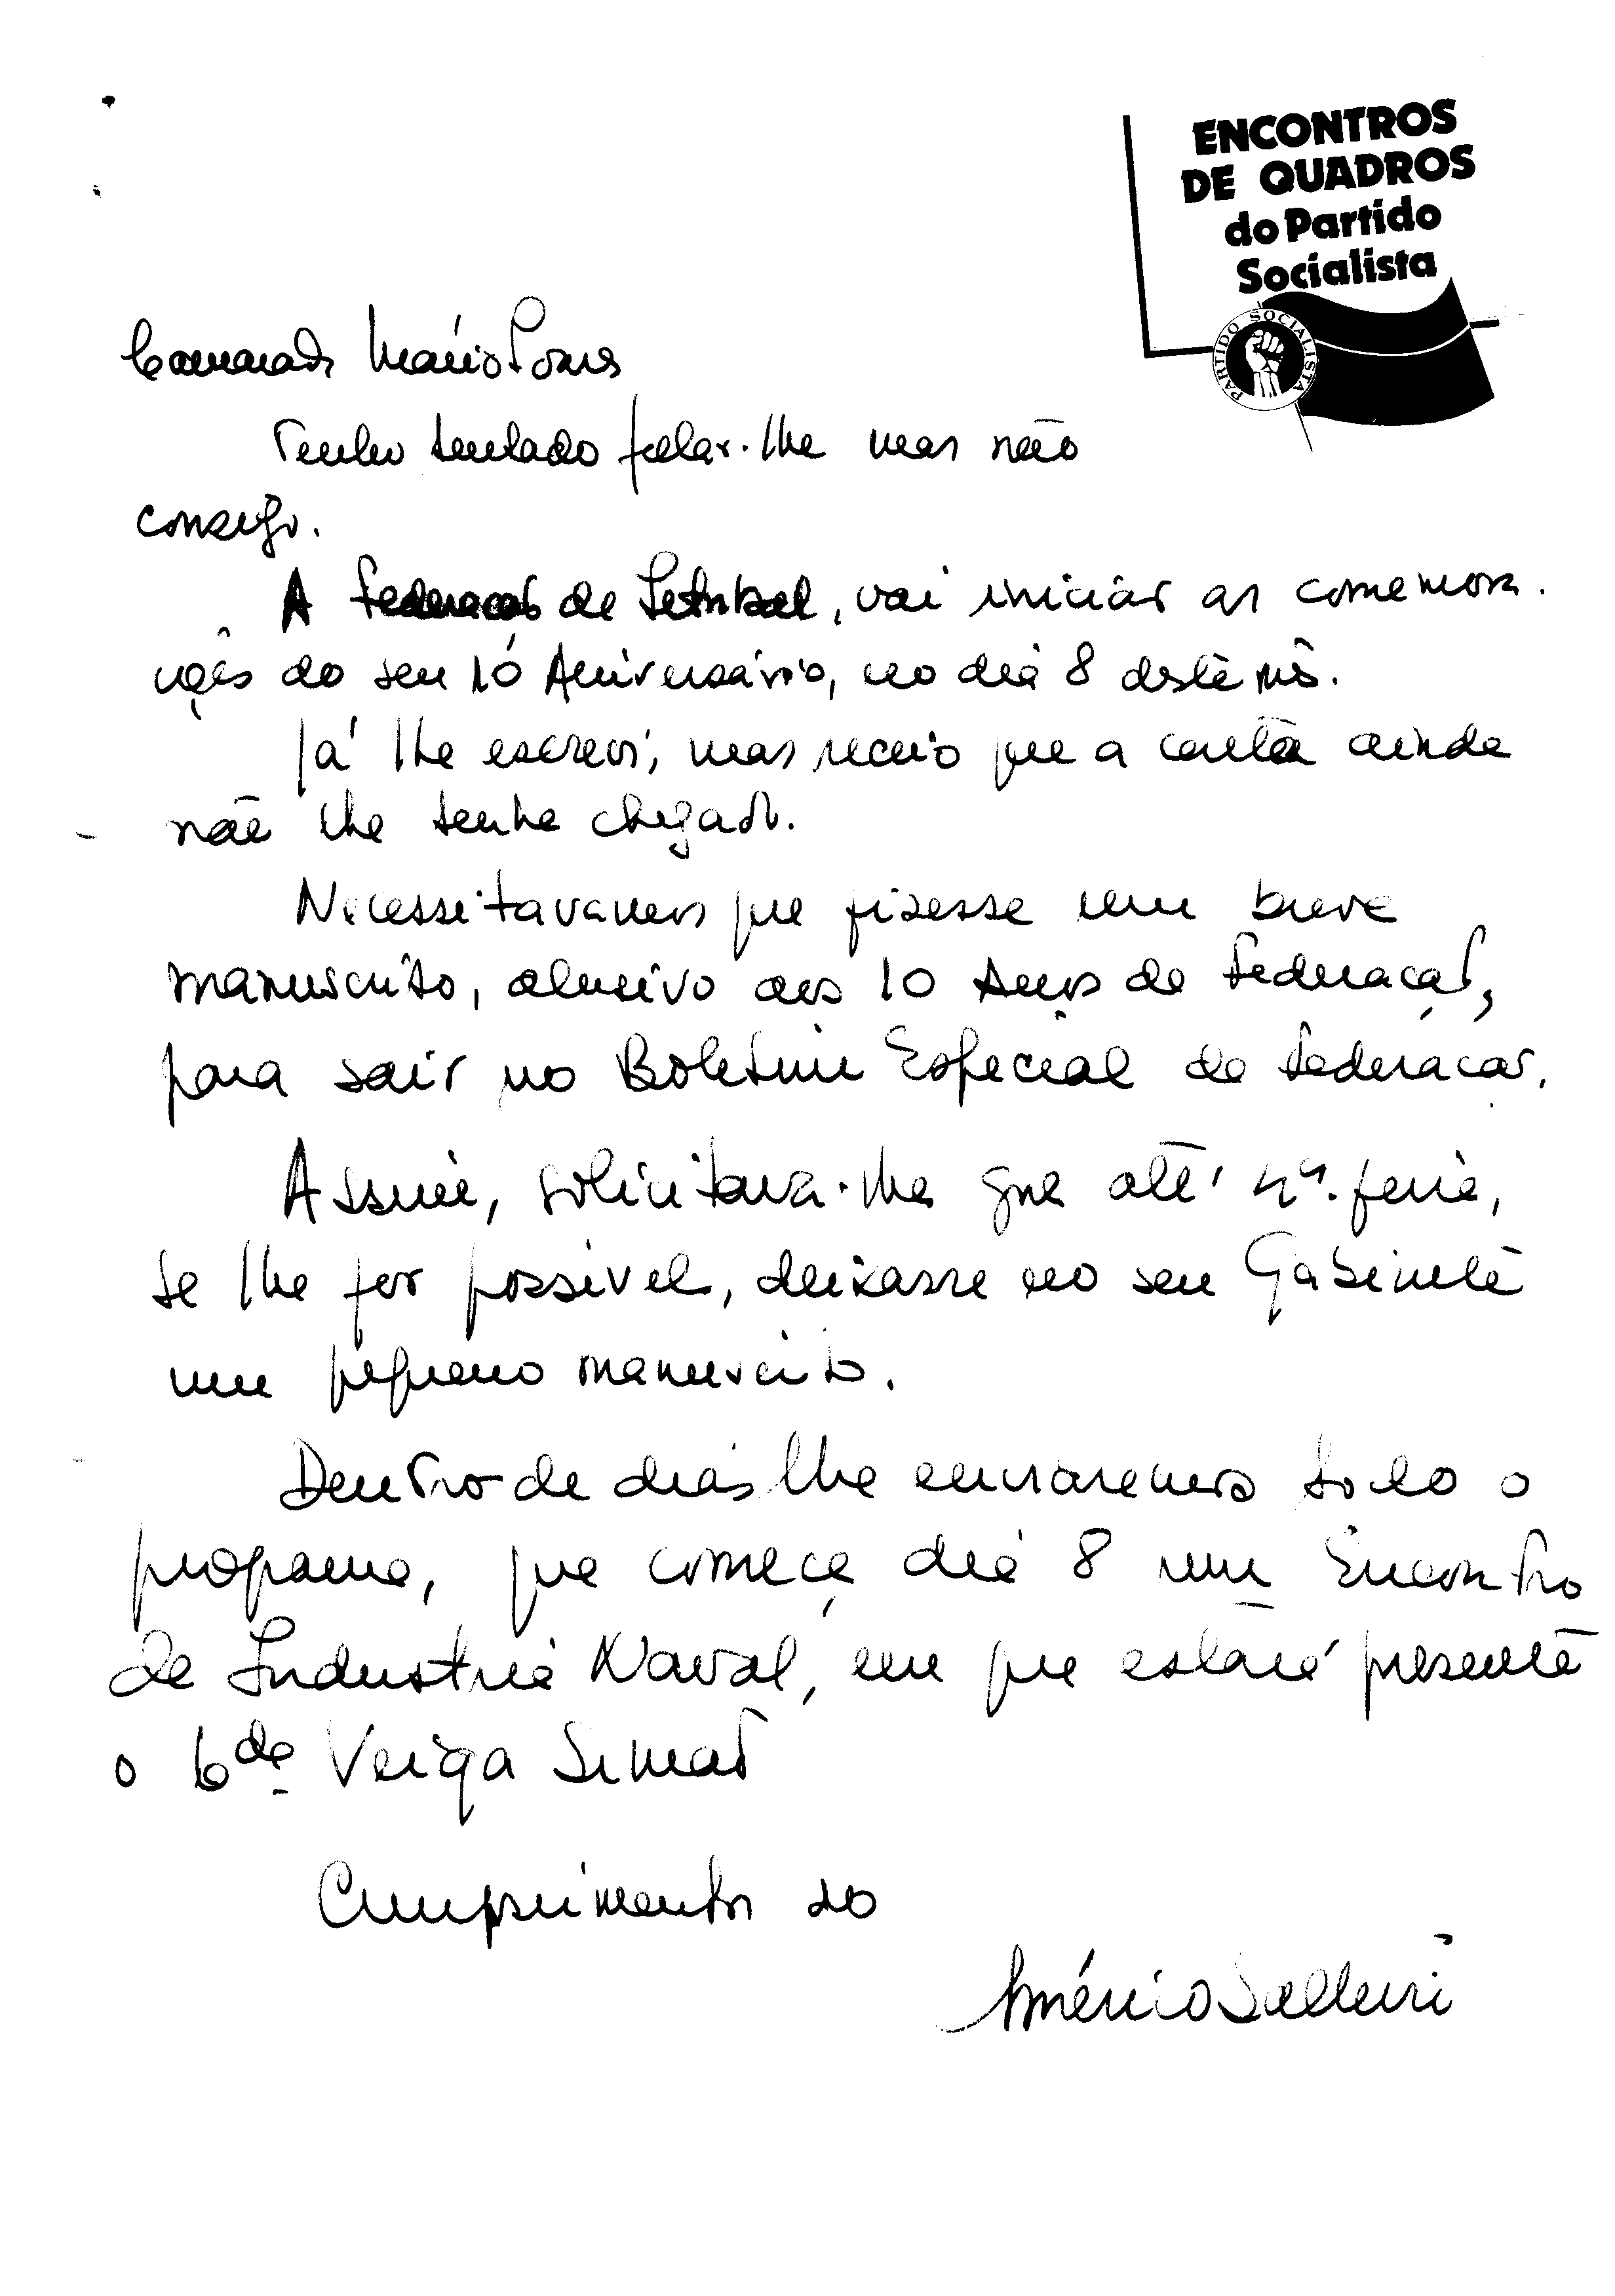 ENCONTROS
DE QUADROS
do Partido
Socialista
PARTIDO SOCIALISTA
Camarada Mário Soares
Tenho tentado falar-lhe mas não
consigo.
A Federação de Setúbal, vai iniciar as comemora-
ções do seu 10 Aniversário, no dia 8 deste mês.
Já lhe escrevi, mas receio que a carta ainda
não lhe tenha chegado.
Necessitavamos que fizesse um breve
manuscrito, alusivo aos 10 Anos da Federação,
para sair no Boletim Especial da Federação.
Assim, solicitava-lhe que até 4ª. feira,
se lhe for possível, deixasse no seu Gabinete
um pequeno manuscrito.
Dentro de dias lhe enviaremos todo o
programa, que começa dia 8 num Encontro
da Industria Naval, em que estará presente
o Cda Veiga Simão
Cumprimentos do
Américo Salteiri